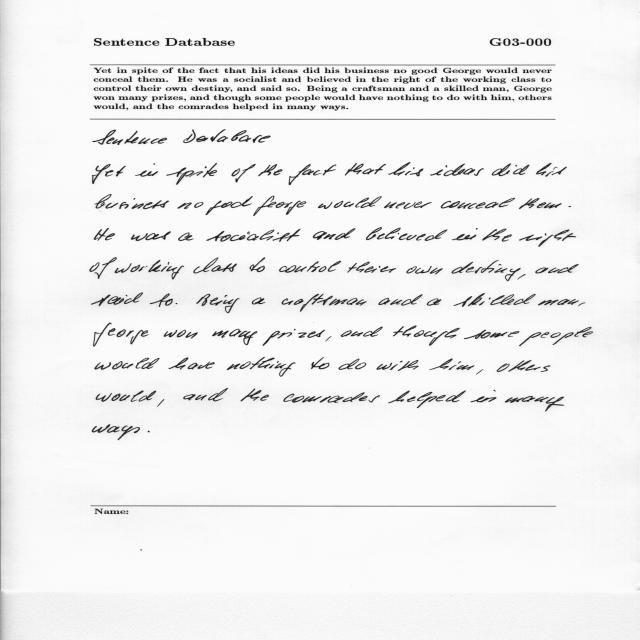 Sentence Database G03-000
Yet in spite of the fact that his ideas did his business no good George would never
conceal them. He was a socialist and believed in the right of the working class to
control their own destiny, and said so. Being a craftsman and a skilled man, George
won many prizes, and though some people would have nothing to do with him, others
would, and the comrades helped in many ways.
Sentence Database
Yet in spite of the fact that his ideas did his
business no good George would never conceal them.
He was a socialist and believed in the right
of working class to control their own destiny, and
said so. Being a craftsman and a skilled man,
George won many prizes, and though some people
would have nothing to do with him, others
would, and the comrades helped in many
ways.
Name: